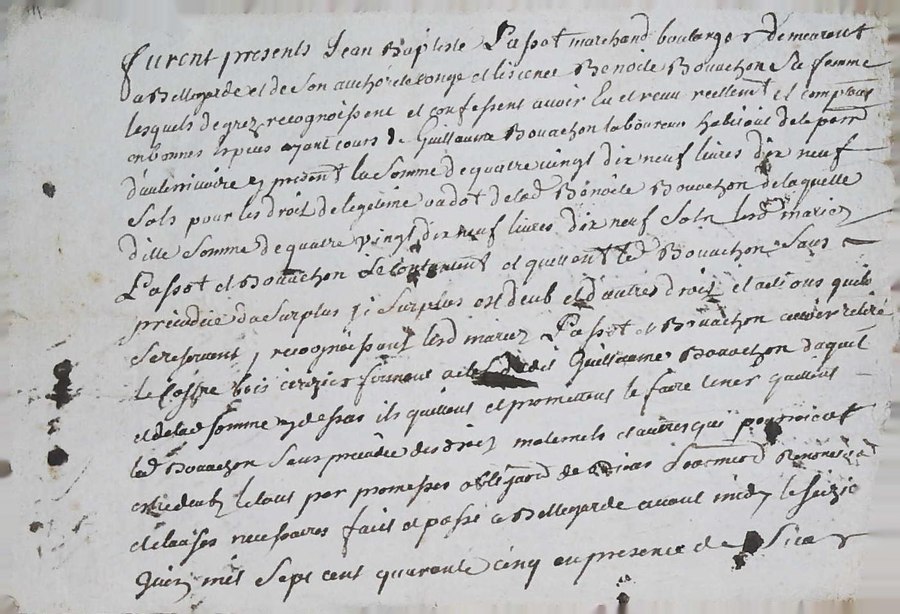 furent presents Jean Baptiste Passot marchand boulanger demeurant
a Bellegarde et de son authorité licence Benoite Bouachon Sa femme
lesquels de grez recognoissent et confessent avoir Eu et receu reellemt et comptant
en bonnes Especes ayant cours de Guillaume Bouachon laboureur habitant de la parr
present la Somme de quatre vingt dix neuf livres dix neuf
Sols pour les droit de legitime a dot de lad Benoite Bouachon de laquelle
ditte Somme de quatre vingt dix neuf livres dix neuf Sols lesd mariez
Passot et Bouachon Se contentent et quittent led Bouachon Sans
prejudice du Surplus Si Surplus est deub et d'autres droits et actions quils
Se reservent recognoissants lesd mariez Passot et Bouachon avoir retiré
le Coffre bois cerizier fermant a clef dudit Guillaume Bouachon duquel
et de lad somme ils quittent et promettent le faire tenir quittant
led Bouachon Sans prejudice des droits maternels et autres qui pourroient
estre deubs le tout par promesses obligaons de biens Soumions Renonciaons
et clauses necessaires fait et passé a Bellegarde avant midy le seizie
Juin mil Sept cent quarante cinq en presence de Sieur